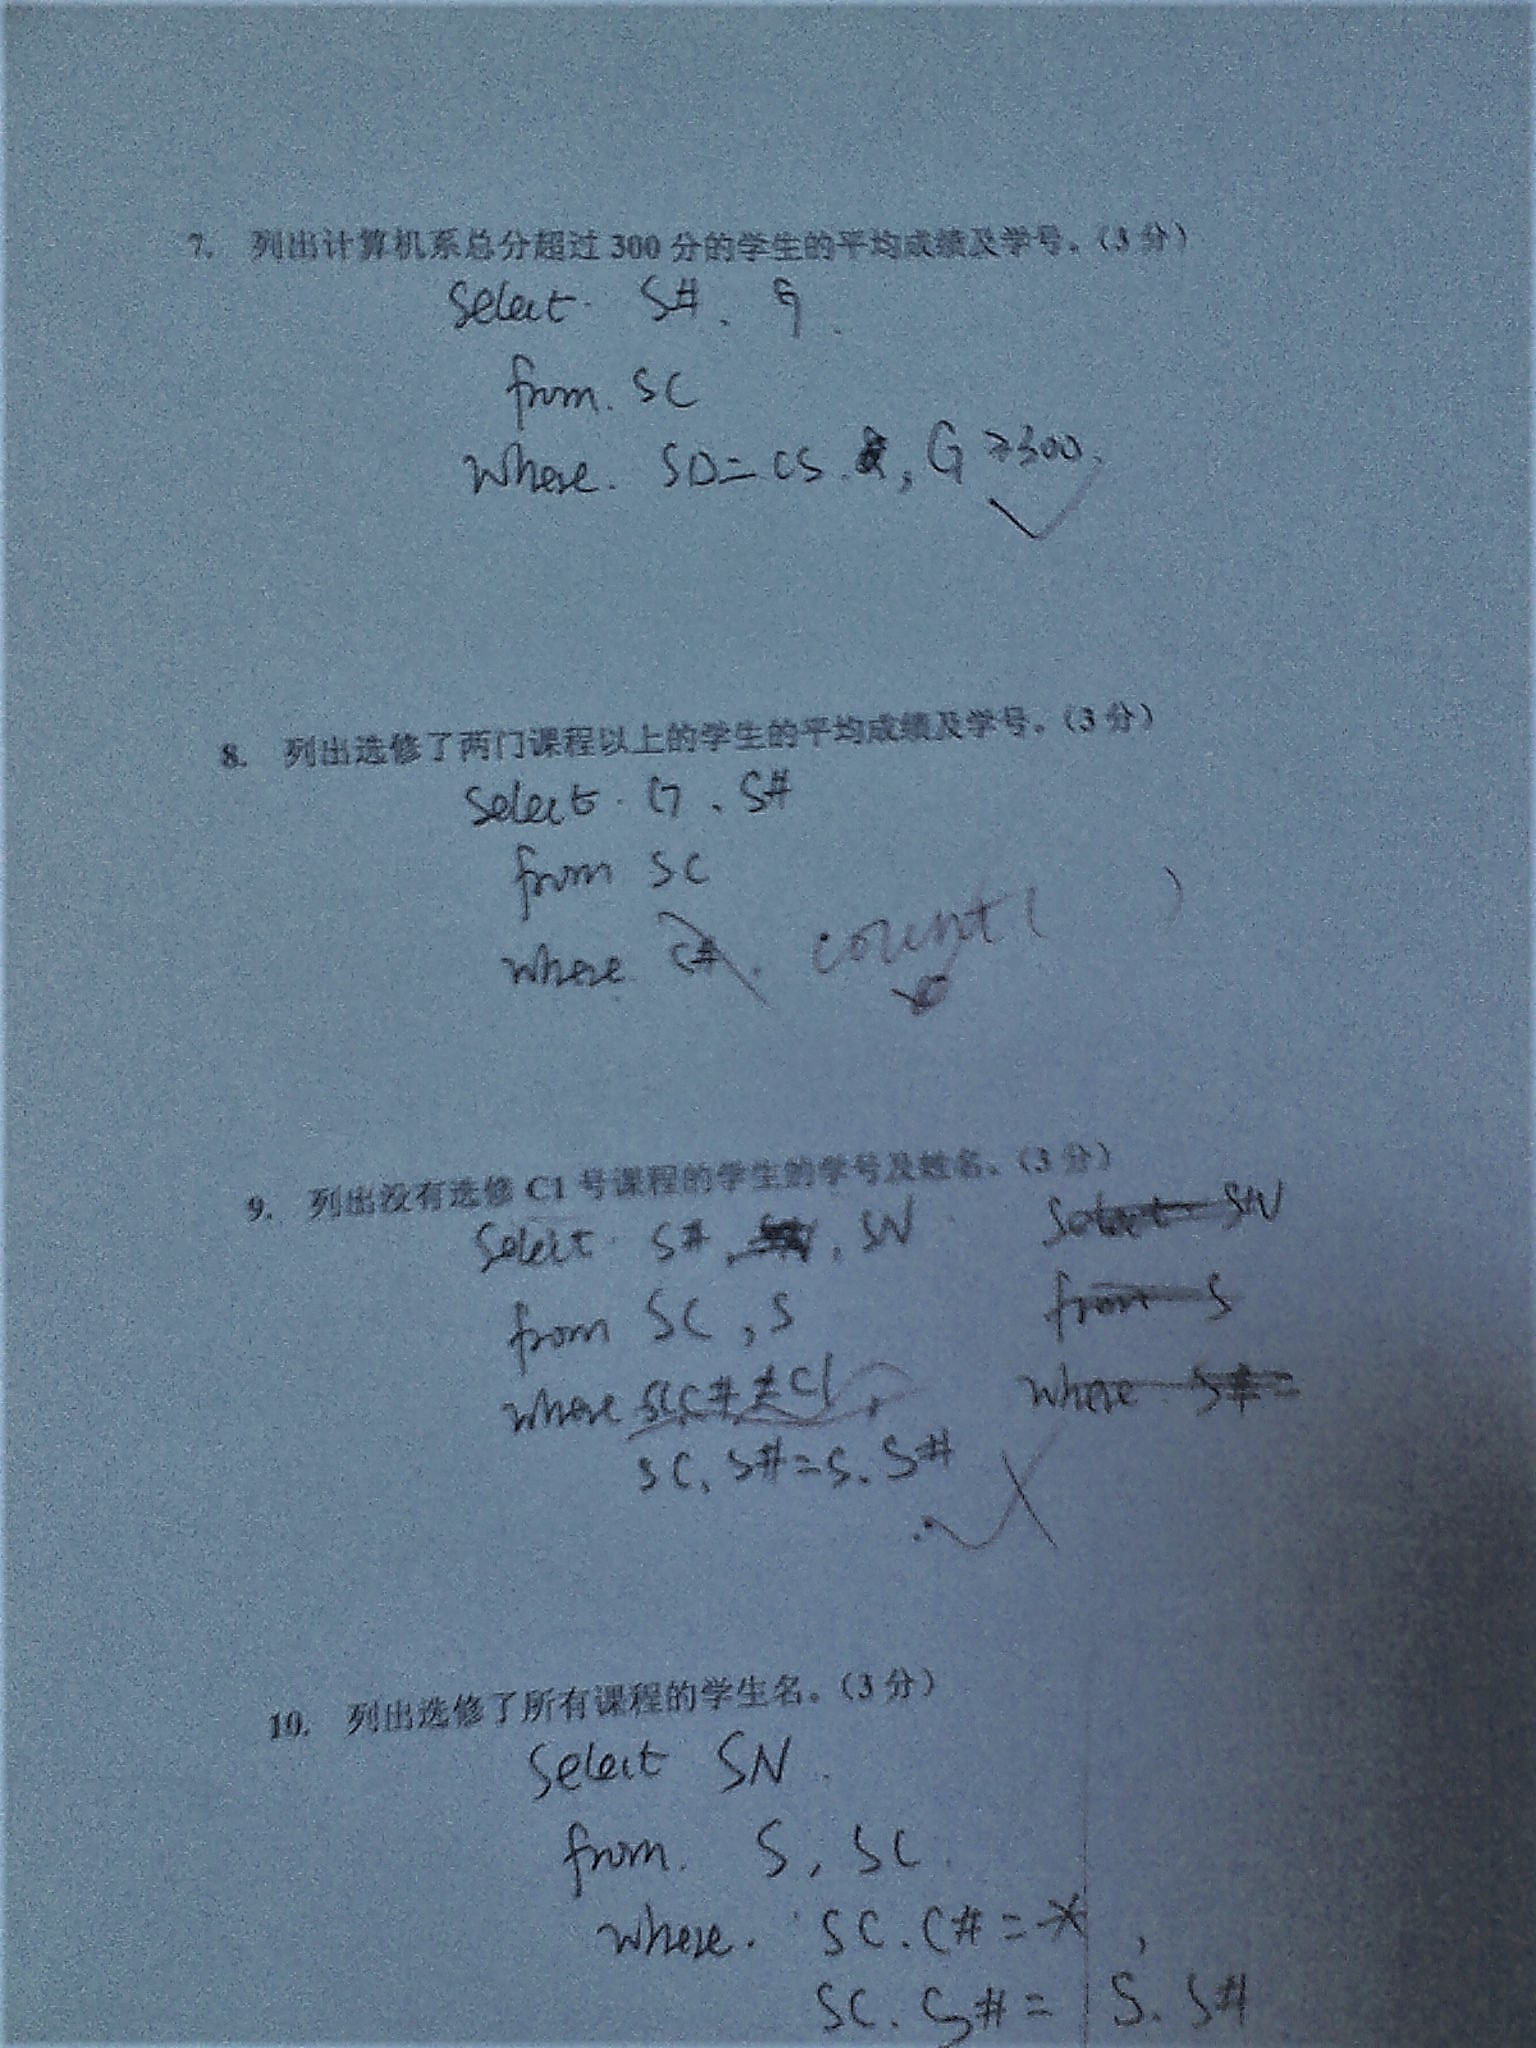 7. 列出计算机系总分超过 300 分的学生的平均成绩及学号。(3 分)
Select S#, G
from SC
where SD=CS , G >300
8. 列出选修了两门课程以上的学生的平均成绩及学号。(3 分)
Select G, S#
from SC
where C# count( )
9. 列出没有选修 C1 号课程的学生的学号及姓名。(3 分)
Select S#, SN
Select SN
from SC, S
from S
where SC.C#≠C1,
where S#=
SC.S#=S.S#
10. 列出选修了所有课程的学生名。(3 分)
Select SN
from S, SC
where SC.C#=*,
SC.S#=S.S#